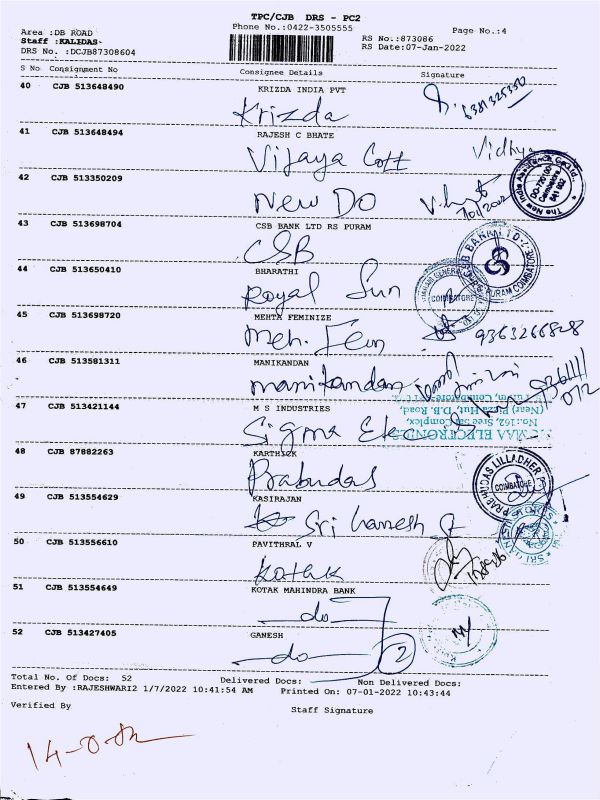 TPC/CJB DRS - PC2
Phone No.:0422-3505555
Page No.:4
Area :DB ROAD
Staff :KALIDAS-
DRS No. :DCJB87308604
RS No.:873086
RS Date:07-Jan-2022
S No Consignment No Consignee Details Signature
40 CJB 513648490 KRIZDA INDIA PVT
Krizda
41 CJB 513648494 RAJESH C BHATE
Vijaya Cott Vidhya
42 CJB 513350209
New DO
The New India Assurance Co. Ltd.
Coimbatore
43 CJB 513698704 CSB BANK LTD RS PURAM
CSB
CSB BANK LTD
R.S. PURAM COIMBATORE
44 CJB 513650410 BHARATHI
Royal Sun
COIMBATORE
45 CJB 513698720 MEHTA FEMINIZE
Meh. Fem
46 CJB 513581311 MANIKANDAN
manikandan
47 CJB 513421144 M S INDUSTRIES
Sigma Elec
ELECTRONICS
No.:162, Sree Sai Complex,
(Near) Pizza Hut, D.B. Road,
48 CJB 87882263 KARTHICK
Prabudas
PRABHUDAS LILLADHER
COIMBATORE
49 CJB 513554629 KASIRAJAN
Sri Ganesh St
50 CJB 513556610 PAVITHRAL V
Kotak
51 CJB 513554649 KOTAK MAHINDRA BANK
do
52 CJB 513427405 GANESH
do 2
Total No. Of Docs: 52 Delivered Docs: Non Delivered Docs:
Entered By :RAJESHWARI2 1/7/2022 10:41:54 AM Printed On: 07-01-2022 10:43:44
Verified By Staff Signature